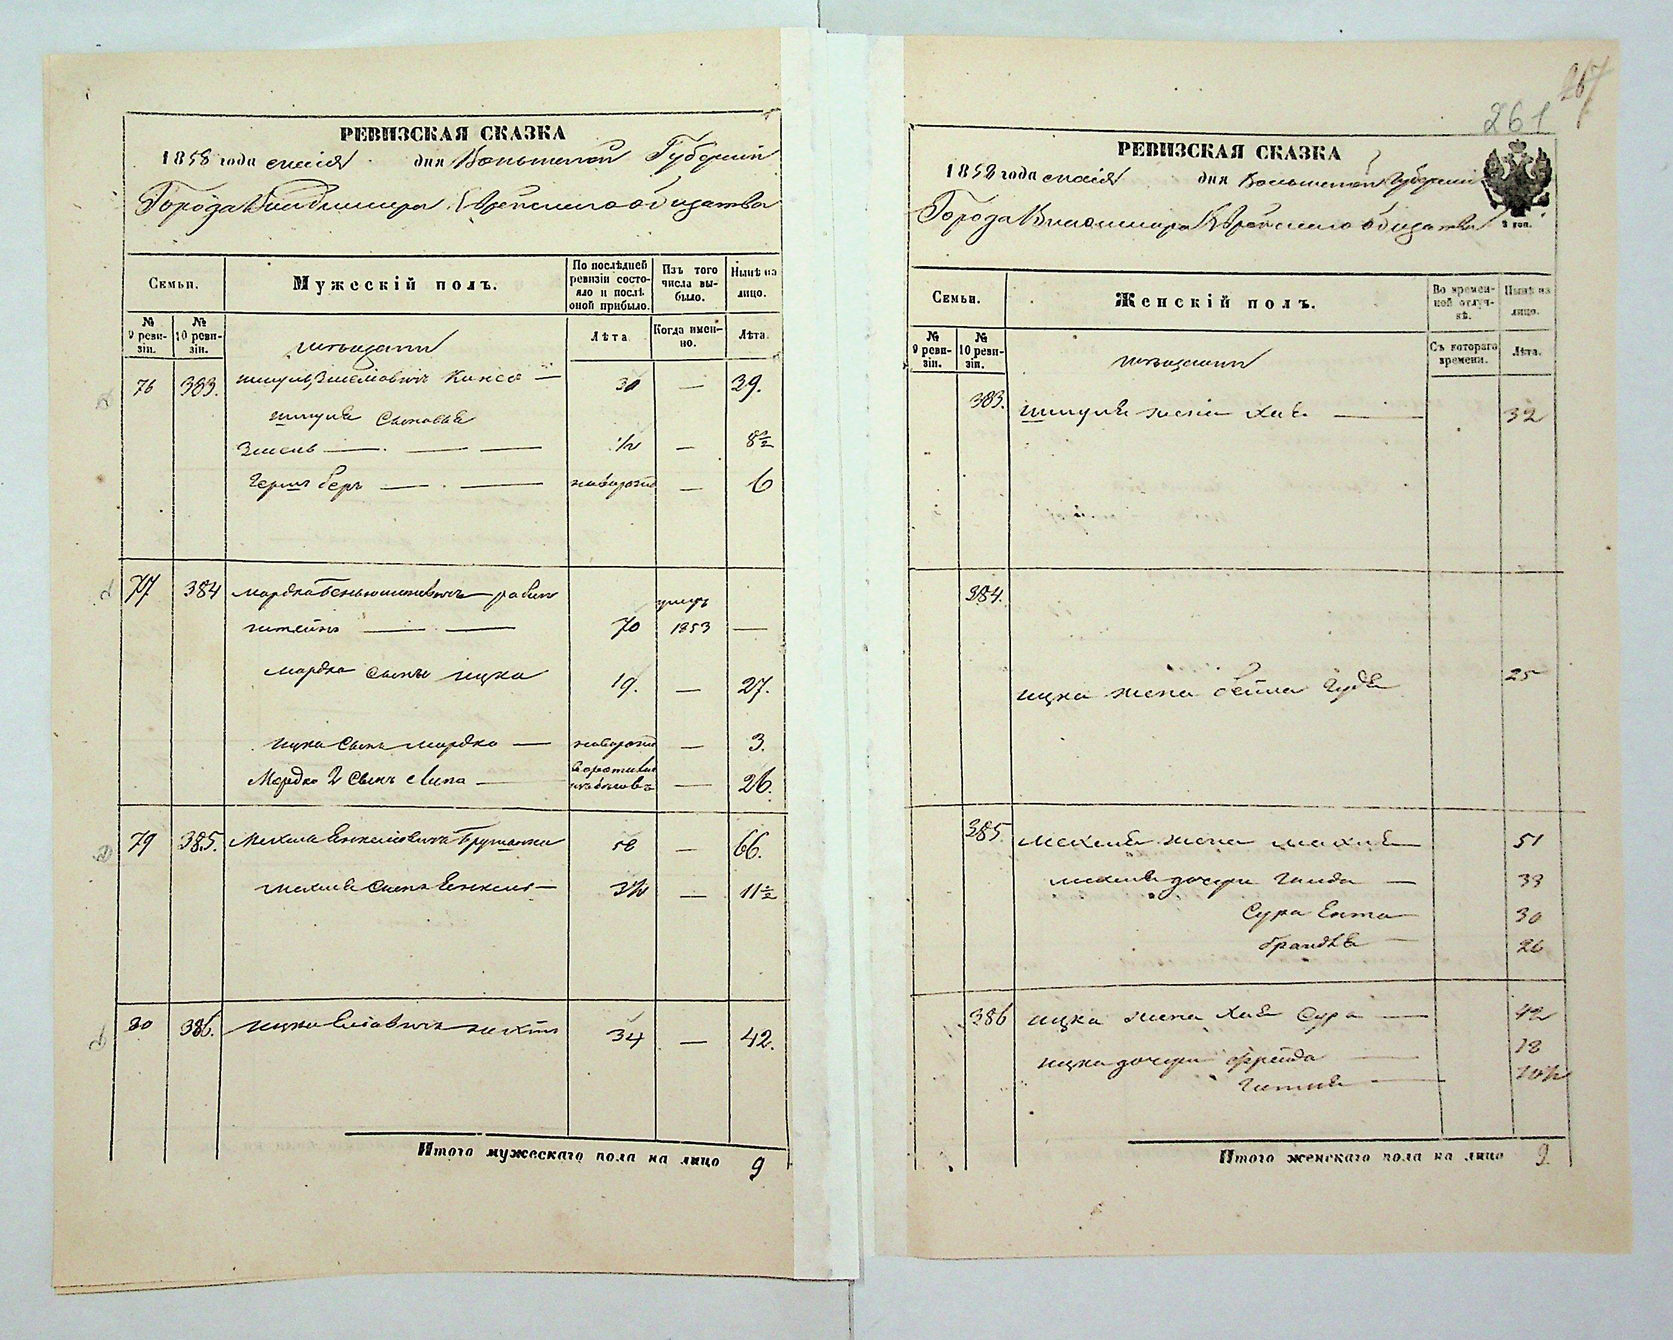 РЕВИЗСКАЯ СКАЗКА
1858 года маія дня Волынской Губерніи
Города Владимира Еврейскаго общества
Семьи.
Мужескій полъ.
По послѣдней ревизіи состояло и послѣ оной прибыло.
Изъ того числа выбыло.
Нынѣ на лицо.
№ 9 ревизіи.
№ 10 ревизіи.
мѣщани
Лѣта
Когда именно.
Лѣта.
76 383. Шмуль Зисельовичъ — 31 — 39.
Шмуля сыновья
Зисель — — — ½ — 8½
Герш беръ — — новорож — 6
77 384 Мордко Беньюминовичъ рабин
штейнъ — — 70 умеръ 1853 —
Мордка сынъ Ицко 19. — 27.
Ицка сынъ Мордко — новорож — 3.
Мордко 2 сынъ Липа — — 26.
79 385. Мехель Енкелiовичъ 58 — 66.
Мехеля сынъ Енкель — 3½ — 11½
80 386. Ицко 34 — 42.
Итого мужескаго пола на лицо 9
267
261
РЕВИЗСКАЯ СКАЗКА
1858 года маія дня Волынской Губерніи
Города Владимира Еврейскаго общества
2 коп.
Семьи.
Женскій полъ.
Во временной отлучкѣ.
Нынѣ на лицо.
№ 9 ревизіи.
№ 10 ревизіи.
мѣщани
Съ котораго времени.
Лѣта.
383. Шмуля жена Хая — 32
384.
Ицка жена бейла Гудя 25
385. Мехеля жена — 51
Мехеля дочери — 33
Сура Ента — 30
брандля — 26
386 Ицка жена Хая Сура — 42
Ицка дочери Фрейда — 18
Гитля — 10½
Итого женскаго пола на лицо 9